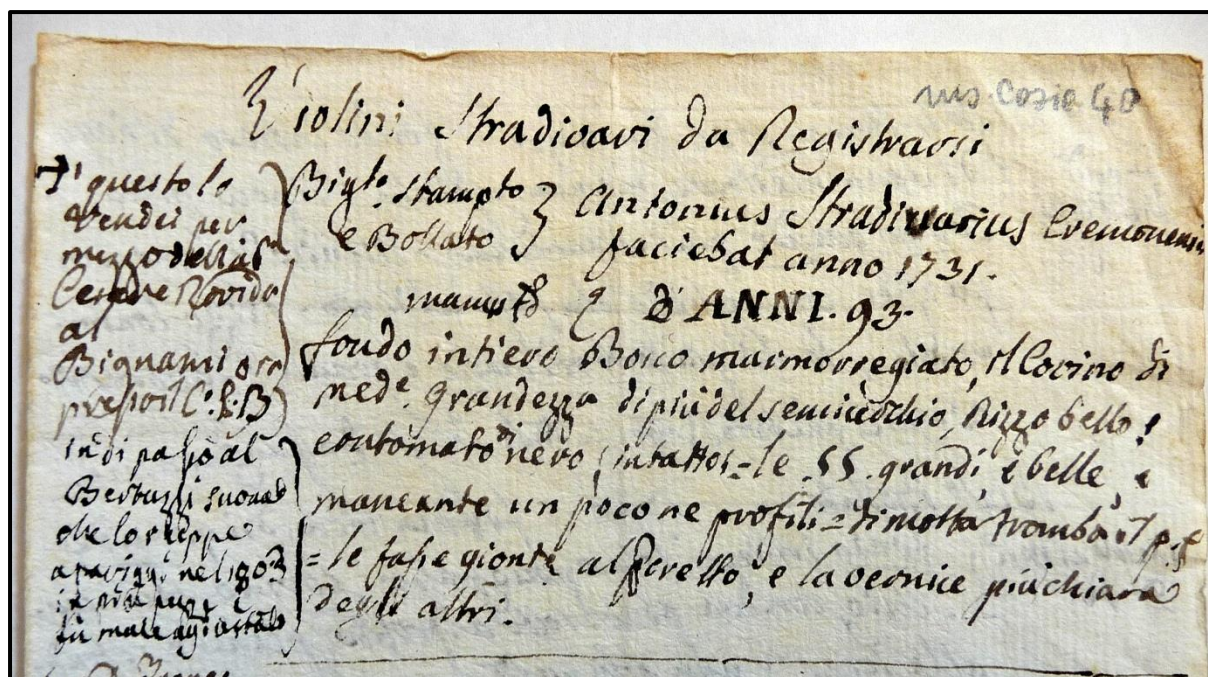 ms. Cozio 40
Violini Stradivari da Registrarsi
Bigto. stampto
e Bollato } Antonius Stradivarius Cremonensis
faciebat anno 1731.
manupto D'ANNI. 93.
fondo intiero Bosco marmorregiato, il Cocino di
mede. grandezza di più del semiuecchio, Rizzo bello!
contornato di nero, intatto = le SS. grandi, è belle, è
mancante un poco ne profili = di molta tromba il p.
= le fasse gionte al peretto, e la vernice più chiara
degli altri.
questo lo
vendei per
mezzo dell'ab
Cesare Rovida
al
Bignami ora
per il C. R. B
indi passò al
Bertuzzi suonat
che lo ruppe
a Pariggi nel 1803
in e
fu male agiustato